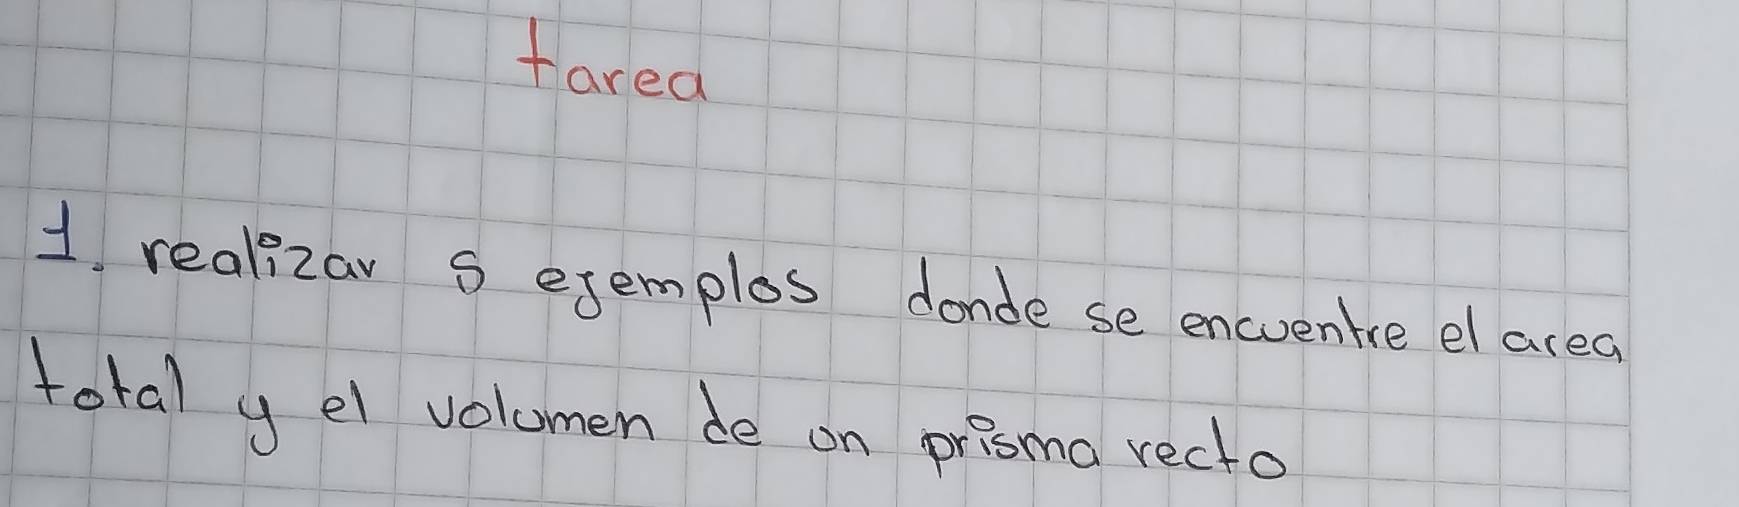 tarea
1. realizar 5 ejemplos donde se encuentre el area
total y el volumen de un prisma recto